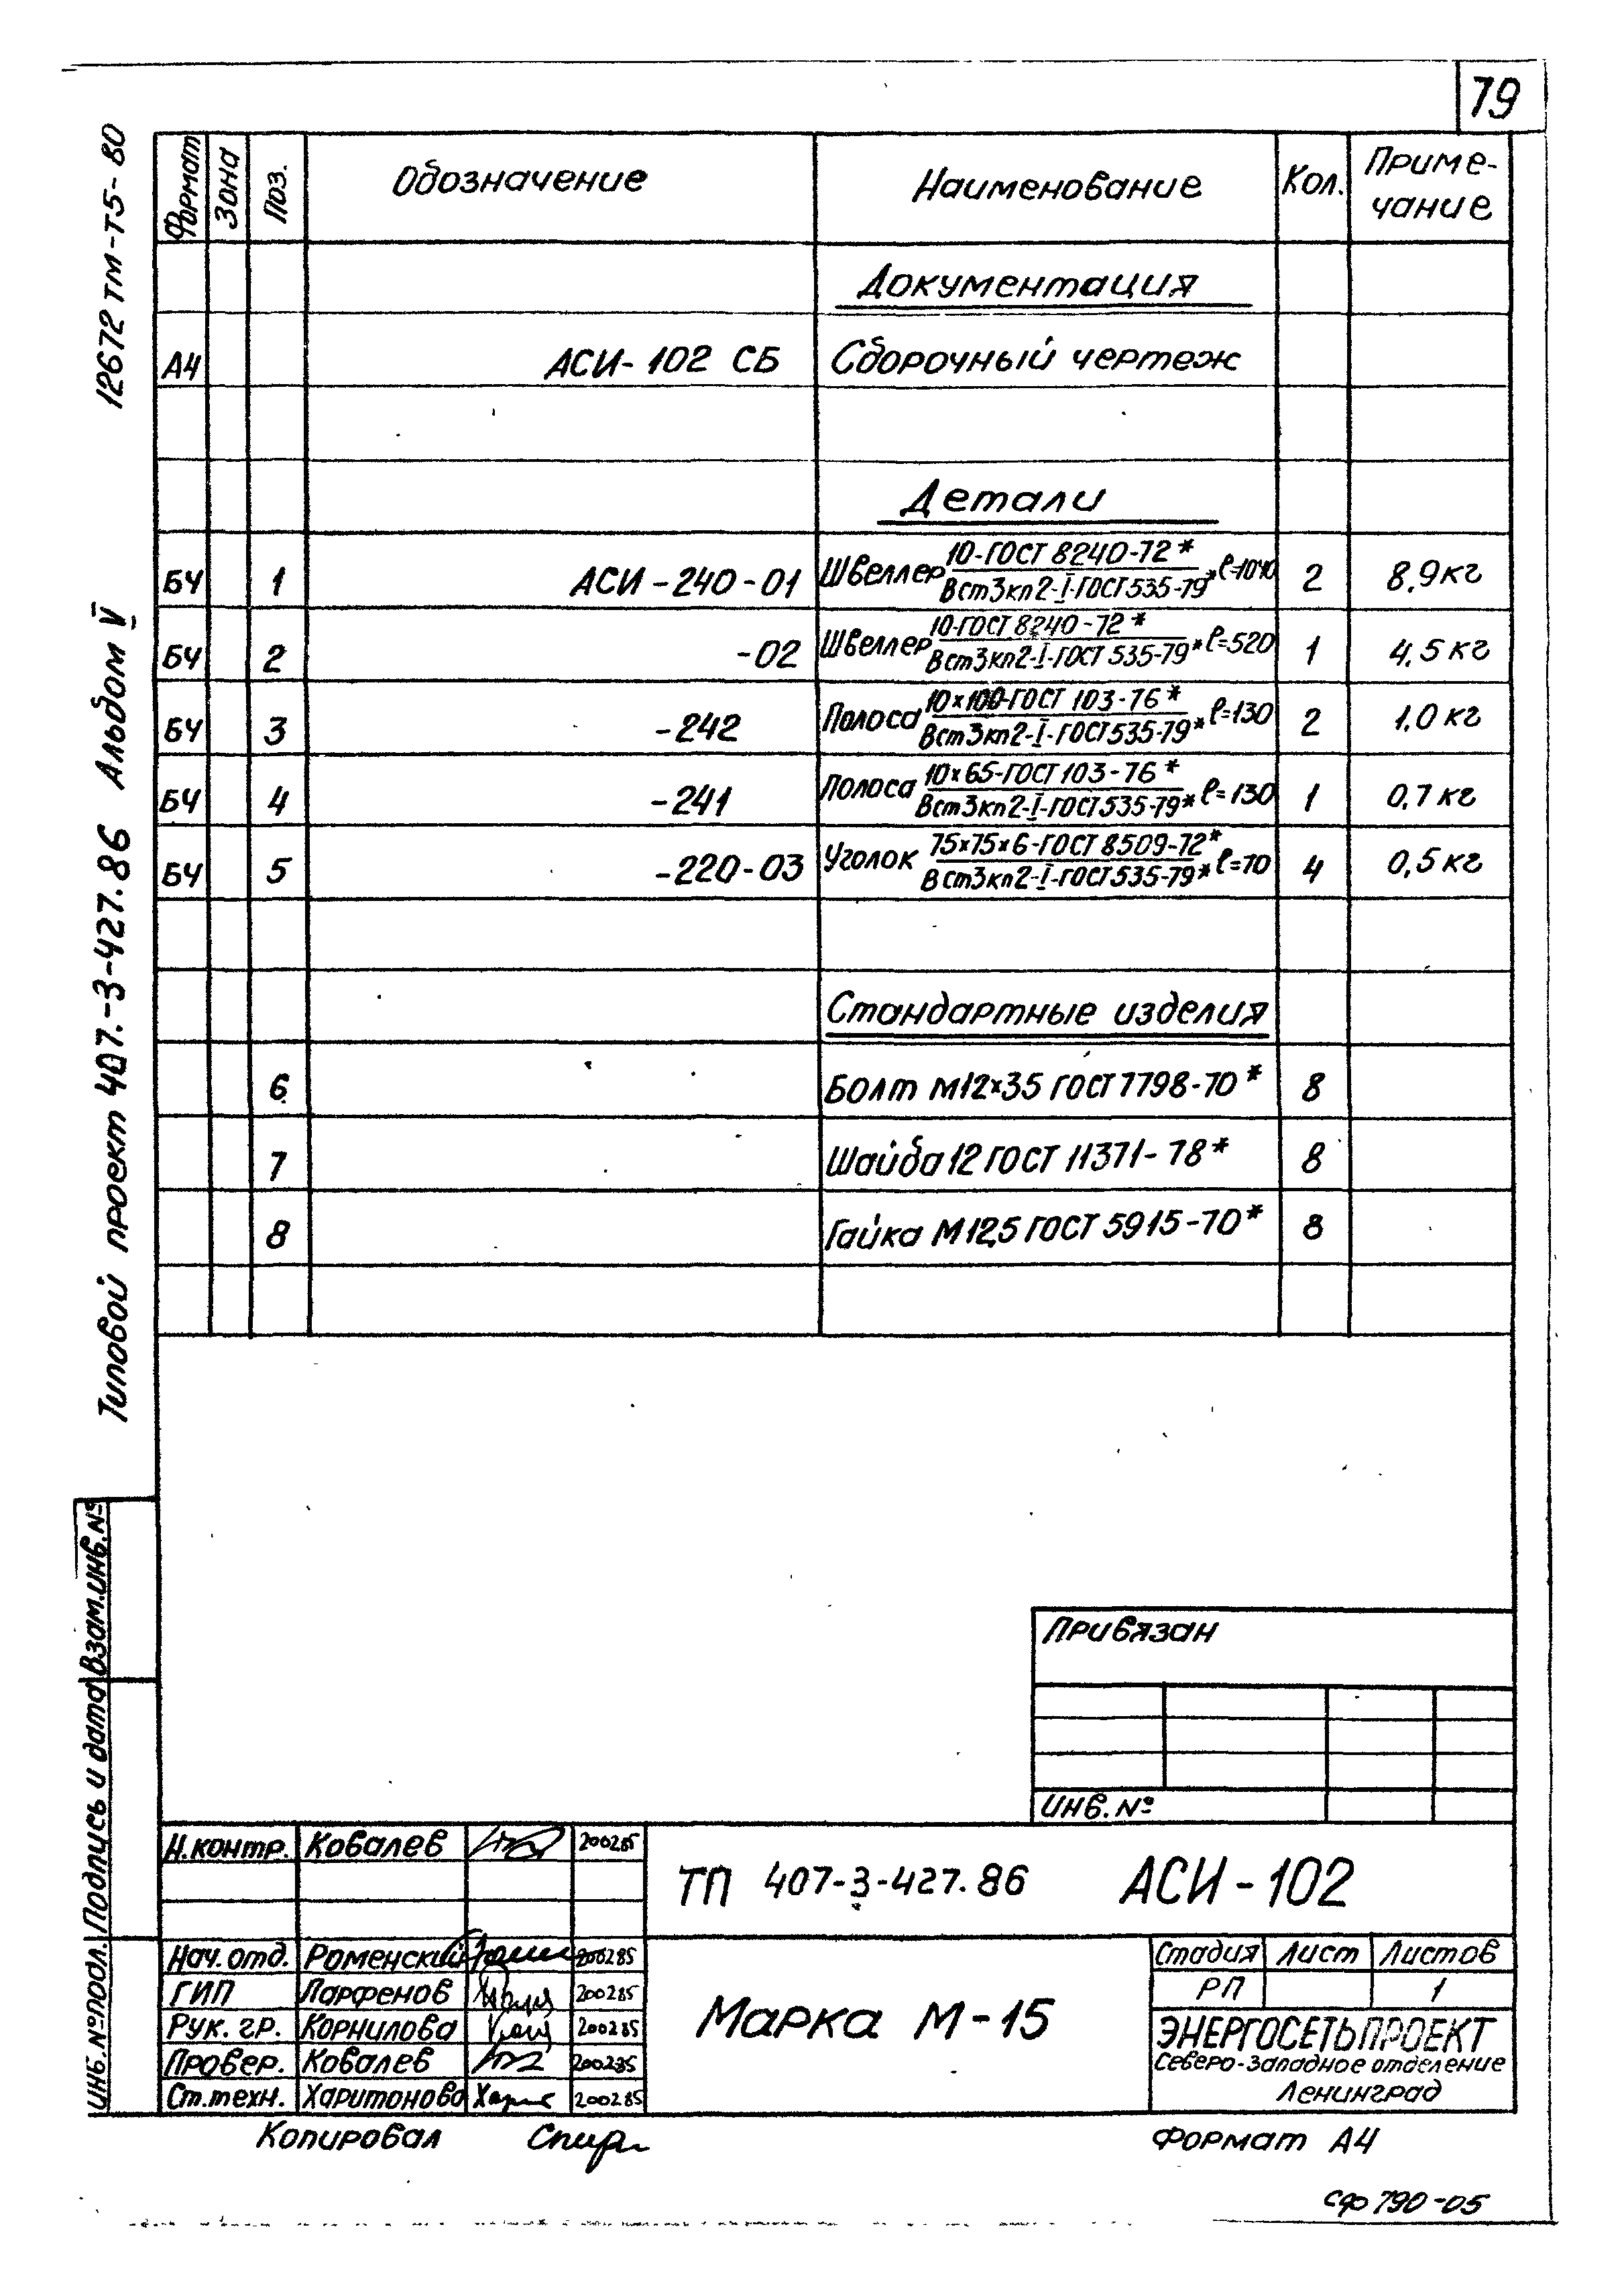 79
12672 ТМ-Т5-80
Типовой проект 407.-3-427.86 Альбом V
Формат Зона Поз. Обозначение Наименование Кол. Приме-
чание
Документация
А4 АСИ-102 СБ Сборочный чертеж
Детали
БЧ 1 АСИ-240-01 Швеллер 10-ГОСТ 8240-72* / Вст3кп2-I-ГОСТ535-79* ℓ=1040 2 8,9кг
БЧ 2 -02 Швеллер 10-ГОСТ 8240-72* / Вст3кп2-I-ГОСТ 535-79* ℓ=520 1 4,5 кг
БЧ 3 -242 Полоса 10×100-ГОСТ 103-76* / Вст3кп2-I-ГОСТ535-79* ℓ=130 2 1,0 кг
БЧ 4 -241 Полоса 10×65-ГОСТ103-76* / Вст3кп2-I-ГОСТ535-79* ℓ=130 1 0,7 кг
БЧ 5 -220-03 Уголок 75×75×6-ГОСТ 8509-72* / Вст3кп2-I-ГОСТ535-79* ℓ=70 4 0,5 кг
Стандартные изделия
6 Болт М12×35 ГОСТ 7798-70* 8
7 Шайба 12 ГОСТ 11371-78* 8
8 Гайка М12,5 ГОСТ 5915-70* 8
Привязан
Инв. №
Инв.№подл. Подпись и дата Взам.инв.№
Н.контр. Ковалев 200285
ТП 407-3-427.86 АСИ-102
Нач.отд. Роменский 200285
ГИП Парфенов 200285
Рук. гр. Корнилова 200285
Провер. Ковалев 200285
Ст.техн. Харитонова 200285
Марка М-15
Стадия Лист Листов
РП 1
ЭНЕРГОСЕТЬПРОЕКТ
Северо-Западное отделение
Ленинград
Копировал Формат А4
сф 790-05